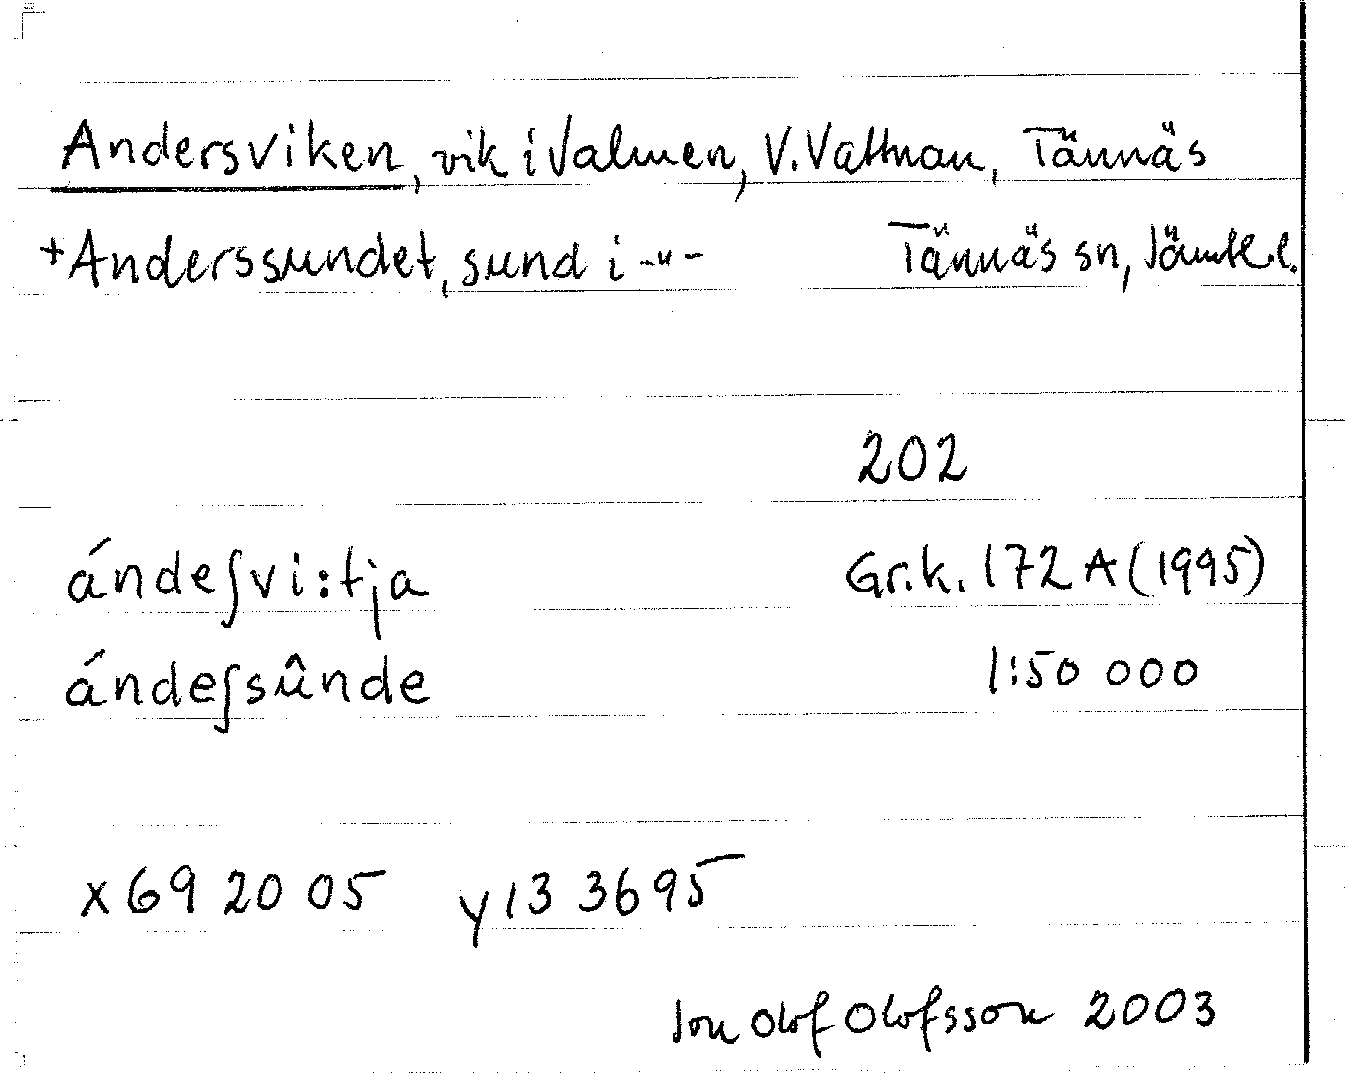 Andersviken, vik i Valmen, V. Vattnan, Tännäs
+Anderssundet, sund i -"- Tännäs sn, Jämtl.l.
202
ándeʃvi:tja Gr.k. 172 A (1995)
ándeʃsûnde 1:50 000
x 69 20 05 y 13 36 95
Jon Olof Olofsson 2003